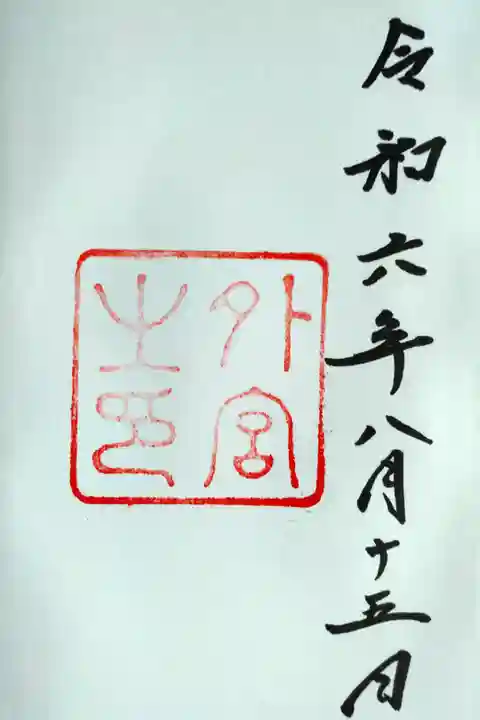 令和六年八月十五日
外宮
之印